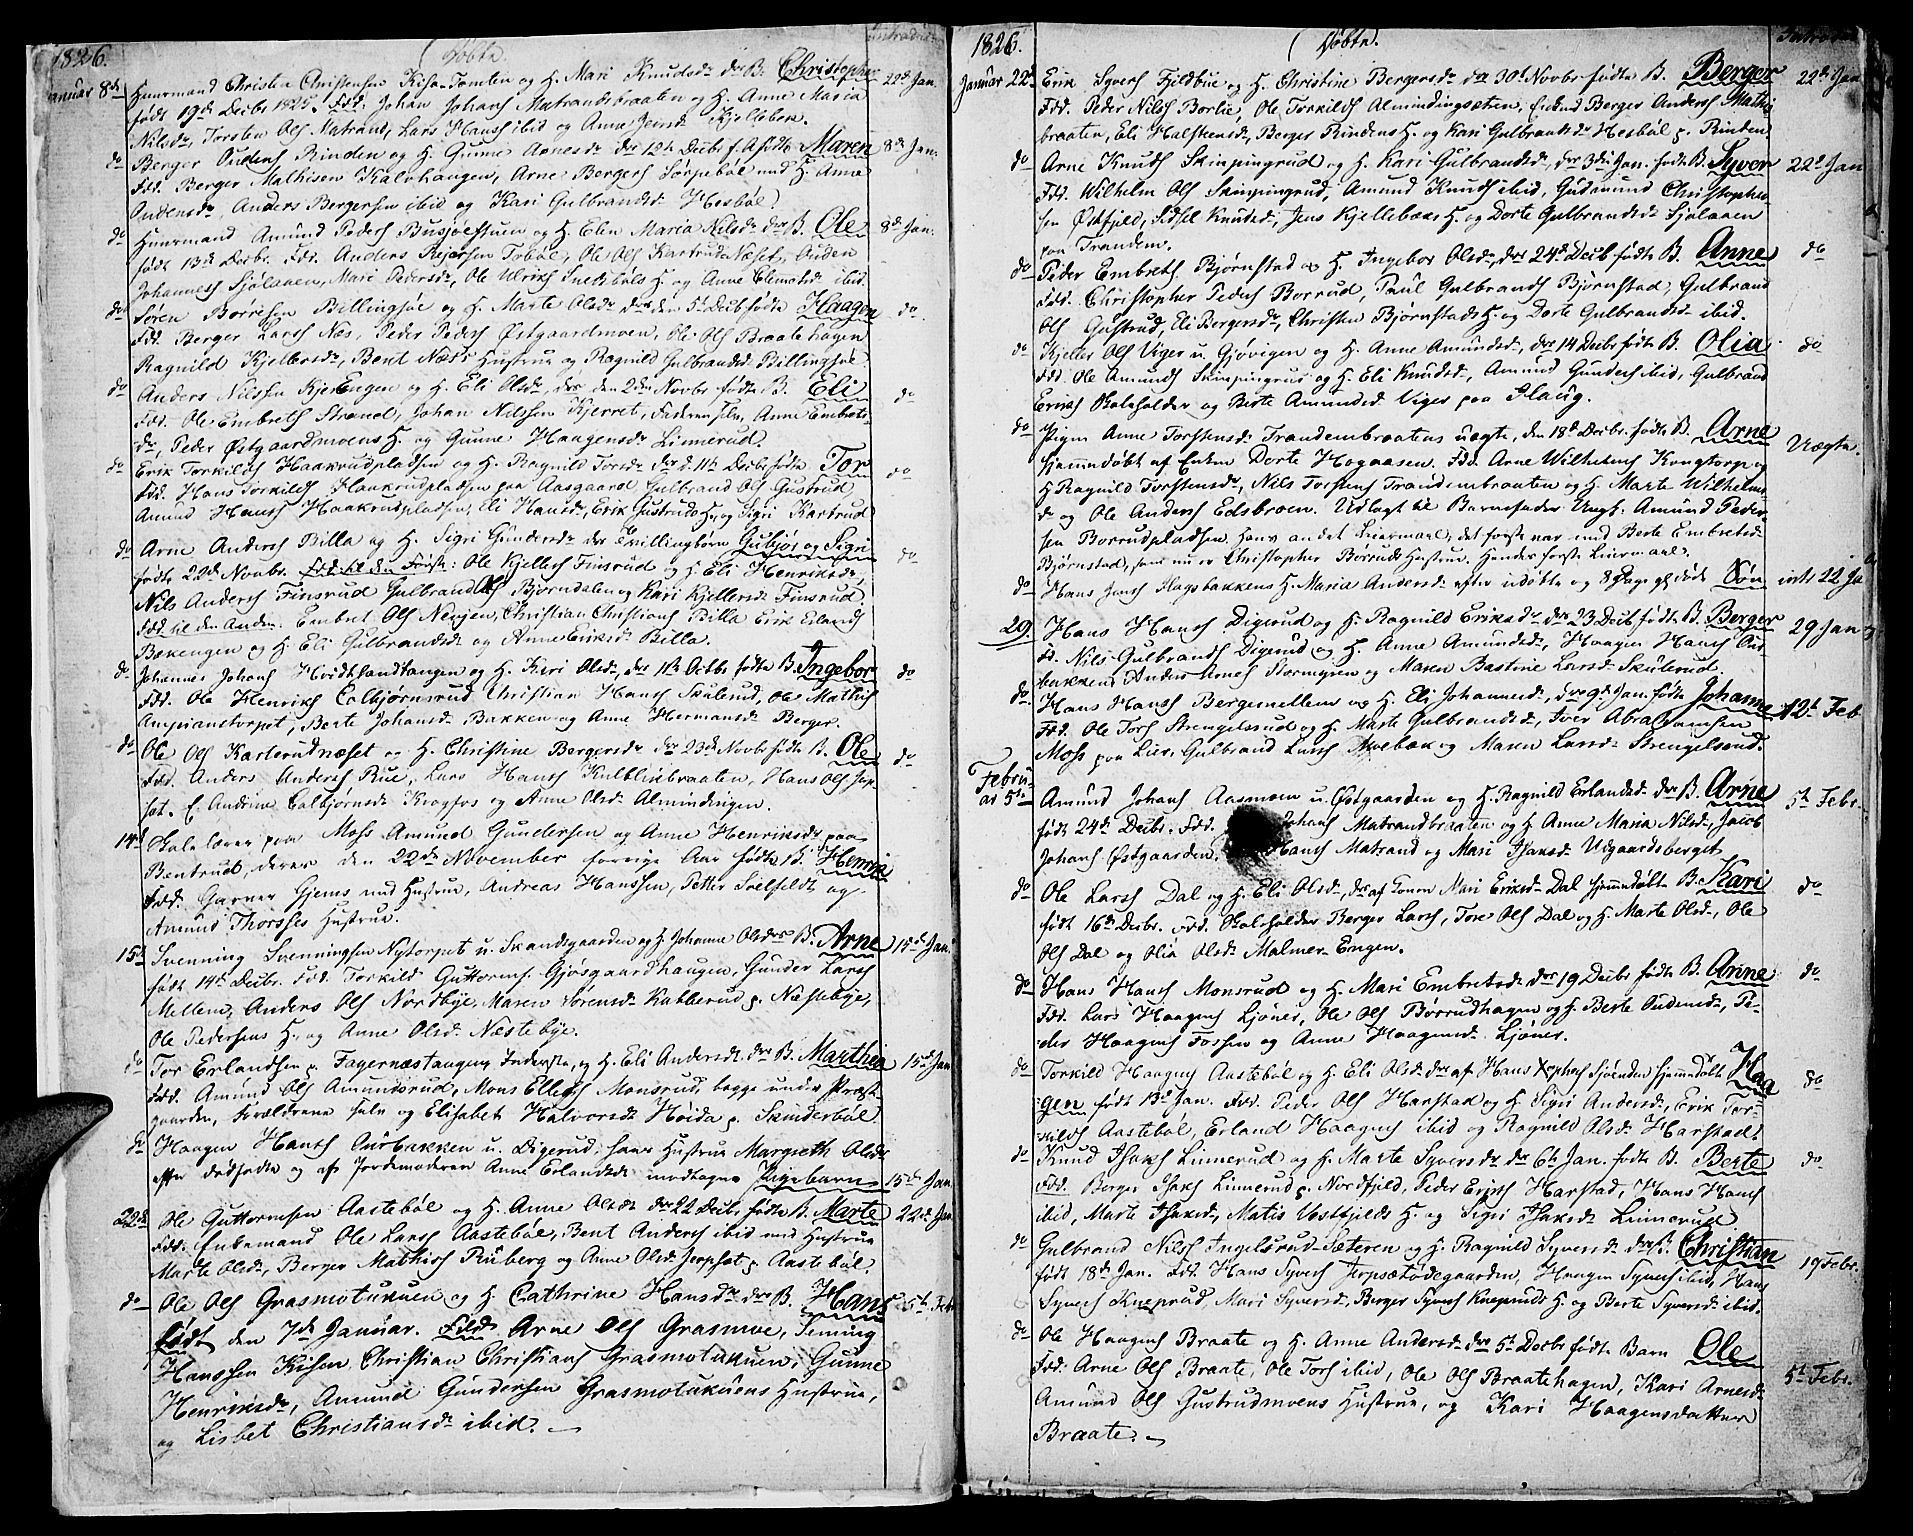 1826. Døbte. Introd.
Januar 8de Huusmand Christen Christensen Kisa-Tomten og H. Mari Knudsdr. B. Christopher 22d Jan.
født 19de Decbr 1825. Fdd. Johan Johans Matrandsbraaten og H. Anne Maria
Nilsdr, Torsten Ols Matrand, Lars Hans ibid og Anne Kjellebek.
do Berger Oudens Rinden og H. Gunne Arnesdr 12te Decbr f. A. fødte Maren 8d Jan.
Fdd. Berger Mathisen Kalvhaugen, Arne Bergers Sørpebøl med H. Anne
Oudensdr, Anders Bergersen ibid og Kari Gulbrandsd Hesbøl.
do Huusmand Amund Peders Busjøe og H. Elen Maria Nilsdr B. Ole 8d Jan.
født 13de Decbr. Fdd. Anders Tobøl, Ole Ols Kartrud Næset, Ouden
Johannes Sjølaaen, Mari Pedersdr, Ole Ulriks H. og Anne Clemetsdr ibid.
do Søren Børresen Billingsøe og H. Marte Olsdr den 5te Decb fødte Haagen do
Fdd. Berger Lars Næs, Peder Peders Østgaardmoen, Ole Ols Braatehagen
Ragnild Kjellersdr, Bent Næss Hustrue og Ragnild Gulbrandsd Billingsøe.
do Anders Nilssen Kjerengen og H. Eli Olsdr, den 2den Novbr fødte B. Eli do
Fdd. Ole Embrets Strand, Johan Nilssen Kjerret, Faderen selv, Anne Embrets
dr, Peder Østgaardmoens H. og Gunne Haagensdr Linnerud.
do Erik Torkilds Haakrudpladsen og H. Ragnild Torsdr d. 11te Decbr fødte Tor do
Fdd. Hans Torkilds Haakrudpladsen paa Aasgaard, Gulbrand Ols Gustrud,
Amund Hans Haakrudpladsen, Eli Hansdr, Erik Gustruds H. og Sigri Kartrud
do Arne Anders Billa og H. Sigri Gundersdr Tvillingbørn Gubjør og Sigri do
fødte 22de Novbr. Fdd. til den Første: Ole Kjellers Finsrud og H. Eli Henriksdr,
Nils Anders Finsrud Gulbrand Ols Bjørndalen og Kari Kjellersdr Finsrud
Fdd. til den Anden: Embret Ols Nergen, Christian Christians Billa Erik Erlands
Bækengen og H. Eli Gulbrandsdr og Anne Eriksdr Billa.
do Johannes Johans Hvidtsandtangen og H. Kari Olsdr 11te Octbr fødte B. Ingebor do
Fdd. Ole Henriks Eabjørnsrud Christian Hans Skulerud, Ole Mathis
Berte Johansdr Bakken og Anne Hermansdr Berger.
do Ole Ols Karterudnæset og H. Christine Bergersdr 23de Novbr fødte B. Ole do
Fdd. Anders Anders Rue, Lars Hans Kulbliebraaten, Hans Ols Jep
set. E. Andrine Krogfos og Anne Olsdr Almindingen.
14d Skolelærer paa Moss Amund Gundersen og Anne Henriksdr paa
Bentrud, deres den 22de November forrige Aar fødte B. Henrik
Fdd. Garver Gjems med Hustrue, Andreas Hanssen, Petter Seelfeldt og
Amund Thorsses Hustrue.
15de Svenning Svenningsen Nytorpet u. Skandsgaarden og H. Johanne Olsdr B. Arne 15de Jan.
født 14de Decbr. Fdd. Torkild Guttorms Gjøsgaardhaugen, Gunder Lars
Mellem, Anders Ols Nordbye, Maren Sørensdr Kabberud p. Næstebye,
Ole Pedersens H. og Anne Olsd Næstebye.
do Tor Erlandsen p. Fagernæstangen Inderste, og H. Eli Andersd B. Marthe 15de Jan
Fdd. Amund Ols Amundsrud, Mons Ellefs Monsrud, begge under Præst
gaarden, Forældrene selv og Elisabet Halvorsdr Heida p. Skinderbøl.
do Haagen Hans Ourbakken u. Digerud, hans Hustrue Margreth Olsdr
efter dødfødte og af Jordemoderen Anne Erlandsd modtagne Pigebarn 15de Jan.
22de Ole Guttormsen Aastebøl og H. Anne Olsd 22 Decbr fødte B. Marte 22de Jan
Fdd. Enkemand Ole Lars Aastebøl, Bent Anders ibid med Hustrue
Marte Olsdr, Berger Mathis Ruberg og Anne Olsd Jerpset p. Aastebøl.
do Ole Ols Grasmotukuen og H. Cathrine Hansdr B. Hans 5te Feb
født den 7de Januar. Fdd. Arne Ols Grasmoe, Feming
Hanssen Kisen, Christian Christians Grasmotukuen, Gunne
Henriksdr, Amund Gundersen Grasmotukuens Hustrue,
og Lisbet Christiansdr ibid.
1826. Døbte. Introd.
Januar 22de Erik Syvers Fjeldbue og H. Christine Bergersdr 30te Novbr fødte B. Berger 22de Jan
Fdd. Peder Nils Borlie, Ole Torkilds Almindingsæten, Berger Anders Mathi
braaten, Eli Halstensdr, Berger Rindens H. og Kari Gulbrandsdr Hesbøl p. Rinden
do Arne Knuds Skinpingrud og H. Kari Gulbrandsdr, 3die Jan. fødte B. Syver 22d Jan
Fdd. Wilhelm Ols Skinpingrud, Amund Knuds ibid, Gudmund Christophers
sen Østfjeld, Sidsel Knutsd, Jens Kjellebæks H. og Dorte Gulbrandsdr Sjølaaen
paa Trandem.
do Peder Embrets Bjørnstad og H. Ingebor Olsdr, 24de Decb fødte B. Anne do
Fdd. Christopher Peders Borrud, Poul Gulbrands Bjørnstad, Gulbrand
Ols Gustrud, Eli Bergersdr, Christen Bjørnstads H og Dorte Gulbrandsdr ibid.
do Kjeller Ols Viger u. Gjøvigen og H. Anne Amundsdr, 14 Decbr fødte B. Olia do
Fdd. Ole Amunds Skinpingrud og H. Eli Knudsdr, Amund Gunders ibid, Gulbrand
Eriks Skoleholder og Berte Amundsd Viger paa Haug.
do Pigen Anne Torstensdr Trandembraatens uægte, den 18de Decbr. fødte B. Arne Uægte.
hjemmdøbt af Enken Dorte Hogaasen. Fdd. Arne Wilhelms Kongtorp og
H Ragnild Torstensdr, Nils Torstens Trandembraaten og H. Marte Wilhelms
dr og Ole Anders Edsbroen. Udlagt til Barnefader Ungk. Amund Peder
sen Borrudpladsen. Hans andet Leiermaal; det første var med Berte Embretsdr
Bjørnstad, som nu er Christopher Borruds Hustrue. Hendes første Leiermaal.
do Hans Jens Hagsbakkens H. Maria Andersdr efter udøbte og 8 Dage gl. døde Søn int. 22 Ja
29. Hans Hans Digerud og H. Ragnild Eriksdr 23 Decb fødte B. Berger 29 Jan
Fd. Nils Gulbrands Digerud og H. Anne Amundsdr, Haagen Hans Our
bakken, Anders Arnes Stormyren og Maren Bastine Larsdr Skulerud
do Hans Hans Bergemellem og H. Eli Johannesdr, 9de Jan. fødte Johanne 12te Feb
Fdd. Ole Tors Strengelsrud og H. Marte Gulbrandsdr, Iver Abrahamsen
Moss paa Lier, Gulbrand Lars og Maren Larsdr Strengelsrud.
Febru
ar 5te Amund Johans Aasmoen u. Østgaarden og H. Ragnild Erlandsd B. Arne 5te Febr.
født 24de Decbr. Fdd. Johans Matrandbraaten og H. Anne Maria Nilsdr, Jacob
Johans Østgaarden, Hans Matrand og Mari Isaksdr Udgaardsberget
do Ole Lars Dal og H. Eli Olsdr, af Konen Mari Eriksd Dal hjemmdøbte B. Kari do
født 16de Decbr. Fdd. Skoleholder Berger Lars, Tore Ols Dal og H. Marte Olsdr, Ole
Ols Dal og Olia Olsdr Malmer-Engen.
do Hans Hans Monsrud og H. Mari Embretsdr 19 Decbr fødte B. Anne do
Fdd. Lars Haagens Ljøner, Ole Ols Børrudhagen og H. Berte Oudensdr, Pe-
der Haagens Fossen og Anne Haagensdr Ljøner.
do Torkild Haagens Aastebøl og H. Eli Olsdr af Hans Sjøenden hjemmdøbte Haa do
gen født 13de Jan. Fdd. Peder Ols Harstad og H. Sigri Andersdr, Erik Tor-
kilds Aastebøl, Erland Haagens ibid og Ragnild Olsdr Harstad.
do Knud Isaks Linnerud og H. Marte Syversdr 6te Jan. fødte B. Berte do
Fdd. Berger Isaks Linnerud p. Nordfjeld, Peder Eriks Harstad, Hans Hans
ibid, Marte Isaksd, Matis Vestfjelds H. og Sigri Isaksdr Linnerud
do Gulbrand Nils Ingelsrud-Sæteren og H. Ragnild Syversdr B. Christian 19 Febr.
født 18de Jan. Fdd. Hans Syvers Jerpsætødegaarden, Haagen Syvers ibid, Hans
Syvers Kneprud, Mari Syversdr, Berger Syvers Knepruds H. og Berte Syversdr ibid.
do Ole Haagens Braate og H. Anne Andersdr 5te Decbr fødte Barn Ole 5te Febr.
Fdd. Arne Ols Braate, Ole Tors ibid, Ole Ols Braatehagen, Kari Arnesdr
Amund Ols Gustrudmoens Hustrue, og Kari Haagensdatter
Braate.